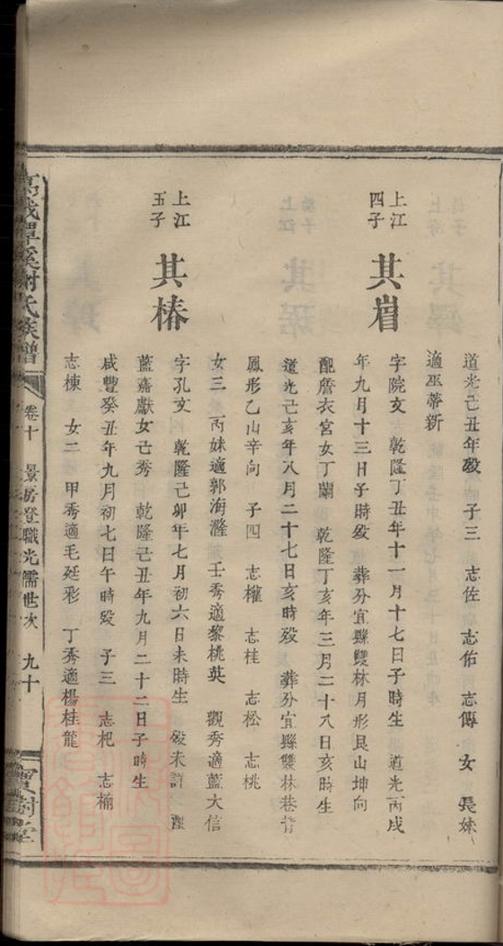 道光己丑年殁 子三 志佐 志佑 志傳 女 長妹
適巫蒂新
上江
四子
其眉
字院文 乾隆丁丑年十一月十七日子時生 道光丙戌
年九月十三日子時殁 葬分宜縣雙林月形艮山坤向
配詹衣宮女丁蘭 乾隆丁亥年三月二十八日亥時生
道光己亥年八月二十七日亥時殁 葬分宜縣雙林巷背
鳳形乙山辛向 子四 志權 志桂 志松 志桃
女三 丙妹適郭海 壬秀適黎桃英 觀秀適藍大信
上江
五子
其椿
字孔文 乾隆己卯年七月初六日未時生 殁未詳 配
藍嘉獻女己秀 乾隆己丑年九月二十二日子時生
咸豐癸丑年九月初七日午時殁 子三 志杞 志楠
志棟 女二 甲秀適毛延彩 丁秀適楊桂龍
萬載譚溪謝氏族譜
卷十 景房登職光儒世次 九十
寶樹堂